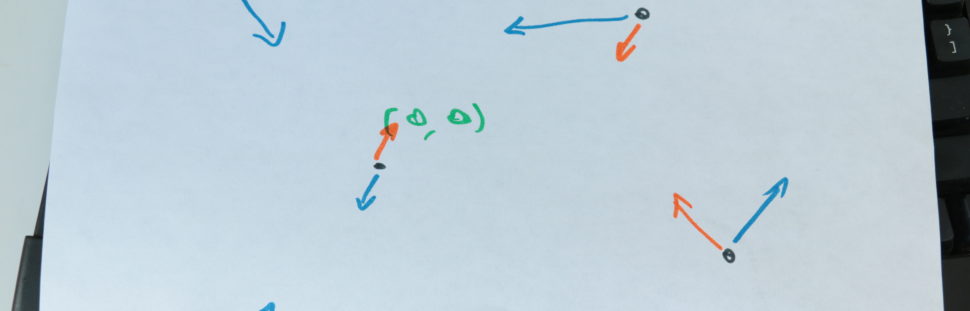 }
]
(0, 0)